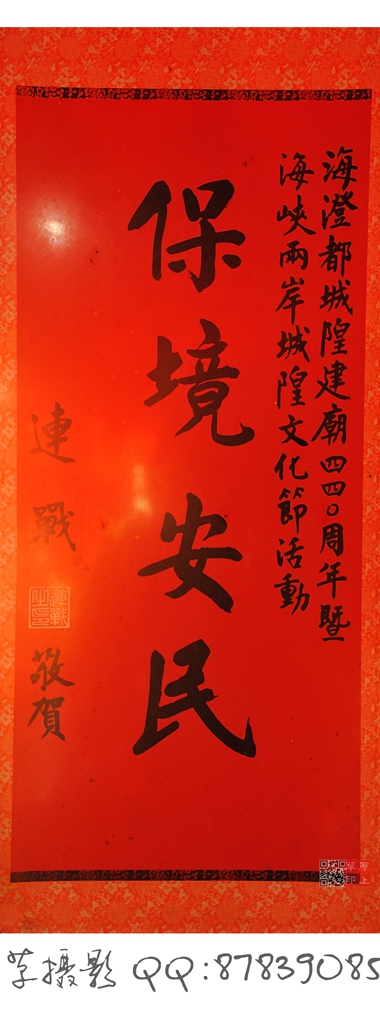 海澄都城隍建廟四四〇周年暨
海峽兩岸城隍文化節活動
保境安民
連戰
敬賀
草攝影 QQ:87839085